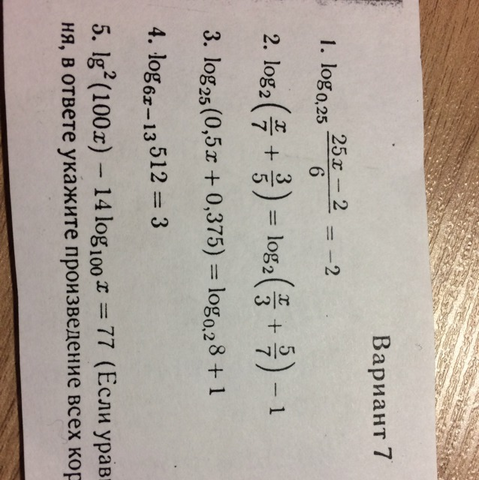 Вариант 7
1. log₀,₂₅ (25x − 2)/6 = −2
2. log₂(x/7 + 3/5) = log₂(x/3 + 5/7) − 1
3. log₂₅(0,5x + 0,375) = log₀,₂8 + 1
4. log₆ₓ₋₁₃512 = 3
5. lg²(100x) − 14 log₁₀₀ x = 77 (Если
ня, в ответе укажите произведение всех